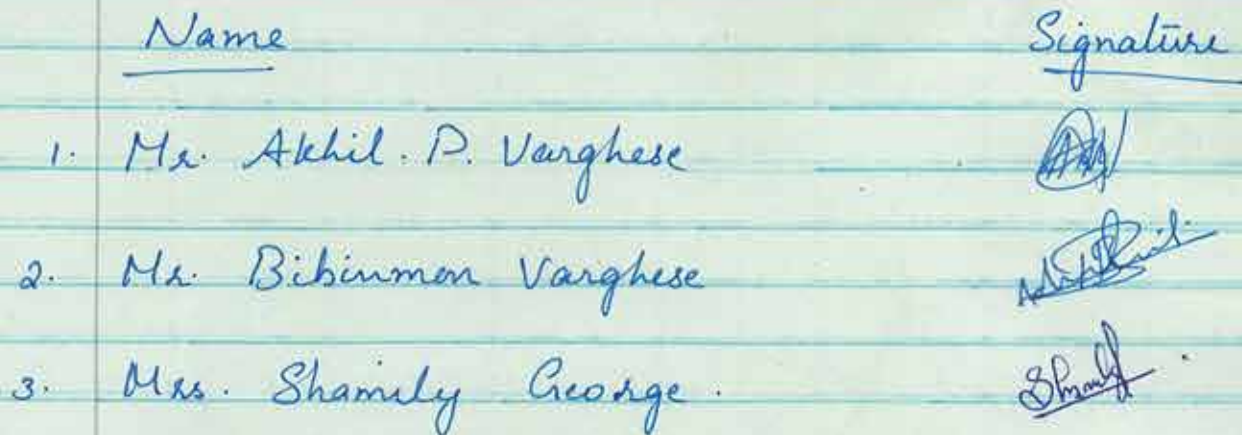 Name Signature
1. Mr. Akhil. P. Varghese
2. Mr. Bibinmon Varghese
3. Mrs. Shamily George.